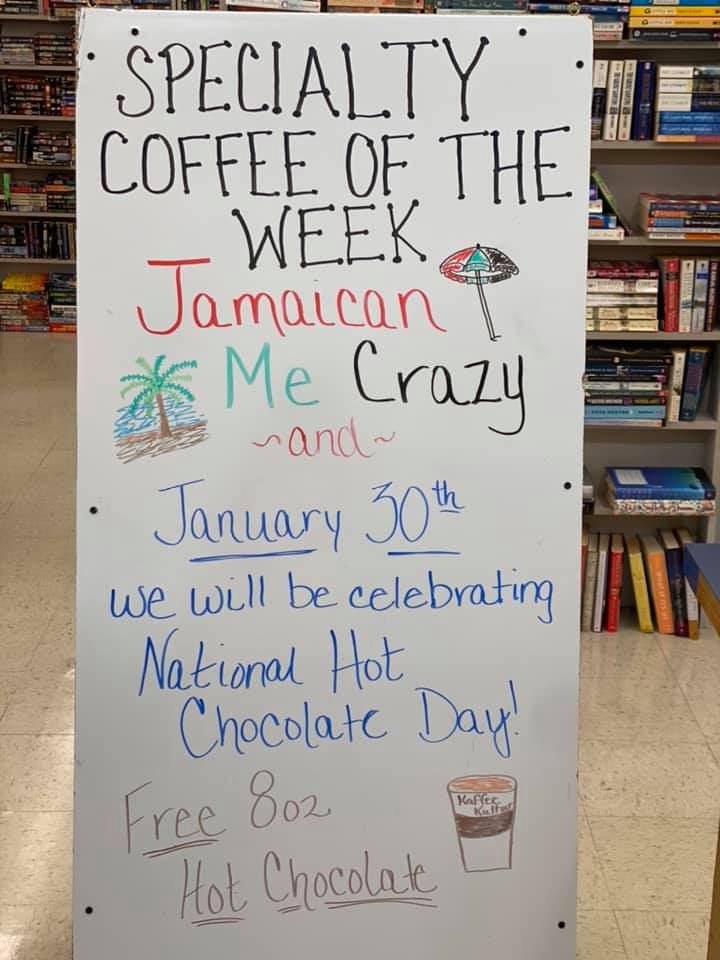 SPECIALTY
COFFEE OF THE
WEEK
Jamaican
Me Crazy
~and~
January 30th
we will be celebrating
National Hot
Chocolate Day!
Free 8oz
Hot Chocolate
Kaffee
Kultur